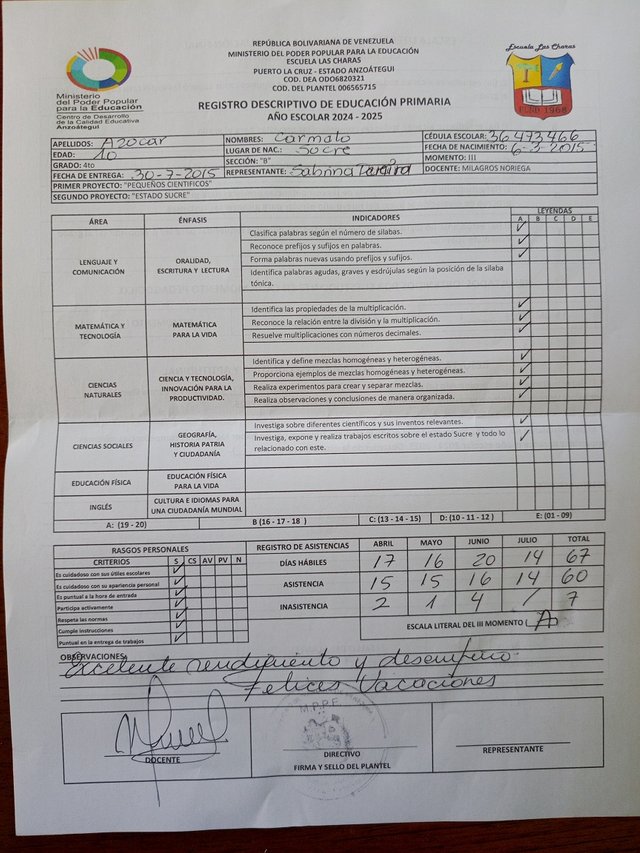 REPÚBLICA BOLIVARIANA DE VENEZUELA
MINISTERIO DEL PODER POPULAR PARA LA EDUCACIÓN
ESCUELA LAS CHARAS
PUERTO LA CRUZ - ESTADO ANZOÁTEGUI
COD. DEA ODO6820321
COD. DEL PLANTEL 006565715
Ministerio
del Poder Popular
para la Educación
Centro de Desarrollo
de la Calidad Educativa
Anzoátegui
Escuela Las Charas
REGISTRO DESCRIPTIVO DE EDUCACIÓN PRIMARIA
AÑO ESCOLAR 2024 - 2025
APELLIDOS: Azocar NOMBRES: Carmelo CÉDULA ESCOLAR: 36473466
EDAD: 10 LUGAR DE NAC.: Sucre FECHA DE NACIMIENTO: 6-3-2015
GRADO: 4to SECCIÓN: "B" MOMENTO: III
FECHA DE ENTREGA: 30-7-2015 REPRESENTANTE: Sabrina DOCENTE: MILAGROS NORIEGA
PRIMER PROYECTO: "PEQUEÑOS CIENTIFICOS"
SEGUNDO PROYECTO: "ESTADO SUCRE"
ÁREA ÉNFASIS INDICADORES LEYENDES
A B C D E
LENGUAJE Y COMUNICACIÓN
ORALIDAD, ESCRITURA Y LECTURA
Clasifica palabras según el número de silabas. ✓
Reconoce prefijos y sufijos en palabras. ✓
Forma palabras nuevas usando prefijos y sufijos. ✓
Identifica palabras agudas, graves y esdrújulas según la posición de la silaba
tónica.
MATEMÁTICA Y TECNOLOGÍA
MATEMÁTICA PARA LA VIDA
Identifica las propiedades de la multiplicación. ✓
Reconoce la relación entre la división y la multiplicación. ✓
Resuelve multiplicaciones con números decimales. ✓
CIENCIAS NATURALES
CIENCIA Y TECNOLOGÍA, INNOVACIÓN PARA LA PRODUCTIVIDAD.
Identifica y define mezclas homogéneas y heterogéneas. ✓
Proporciona ejemplos de mezclas homogéneas y heterogéneas. ✓
Realiza experimentos para crear y separar mezclas. ✓
Realiza observaciones y conclusiones de manera organizada. ✓
CIENCIAS SOCIALES
GEOGRAFÍA, HISTORIA PATRIA Y CIUDADANÍA
Investiga sobre diferentes científicos y sus inventos relevantes. ✓
Investiga, expone y realiza trabajos escritos sobre el estado Sucre y todo lo ✓
relacionado con este.
EDUCACIÓN FÍSICA
EDUCACIÓN FÍSICA PARA LA VIDA
INGLÉS
CULTURA E IDIOMAS PARA UNA CIUDADANÍA MUNDIAL
A: (19 - 20) B (16 - 17 - 18 ) C: (13 - 14 - 15) D: (10 - 11 - 12 ) E: (01 - 09)
RASGOS PERSONALES
CRITERIOS S CS AV PV N
Es cuidadoso con sus útiles escolares ✓
Es cuidadoso con su apariencia personal ✓
Es puntual a la hora de entrada ✓
Participa activamente ✓
Respeta las normas ✓
Cumple instrucciones ✓
Puntual en la entrega de trabajos ✓
REGISTRO DE ASISTENCIAS ABRIL MAYO JUNIO JULIO TOTAL
DÍAS HÁBILES 17 16 20 14 67
ASISTENCIA 15 15 16 14 60
INASISTENCIA 2 1 4 / 7
ESCALA LITERAL DEL III MOMENTO A
OBSERVACIONES:
Excelente rendimiento y desempeño.
Felices Vacaciones
M.P.P.E
DOCENTE
DIRECTIVO
FIRMA Y SELLO DEL PLANTEL
REPRESENTANTE